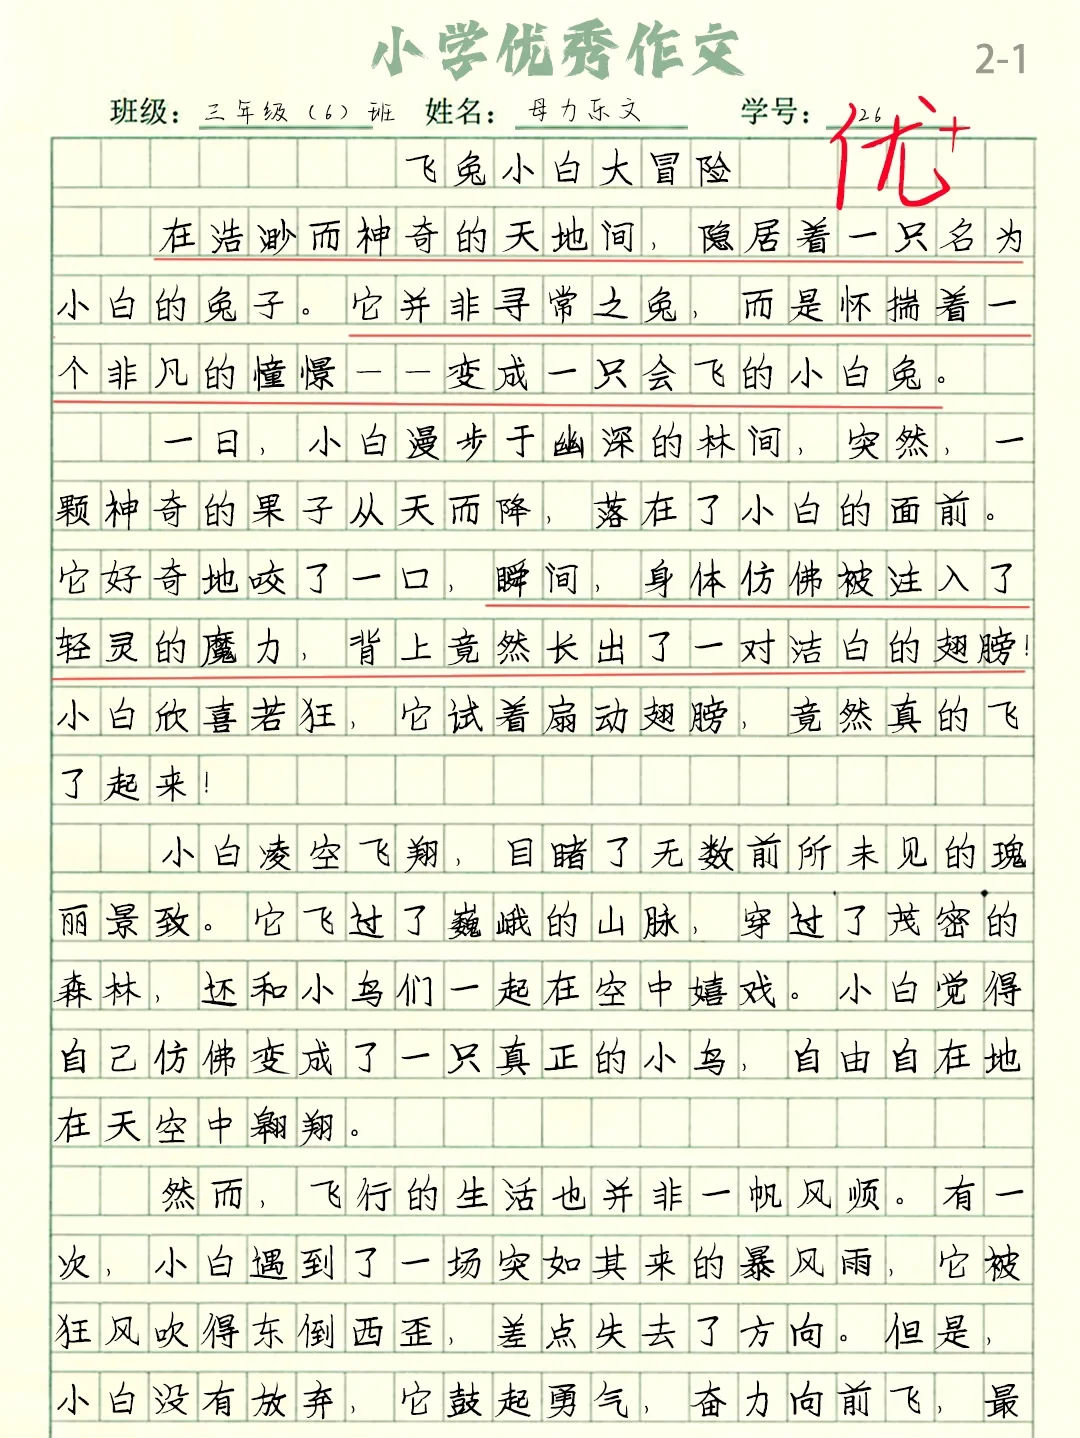 小学优秀作文
2-1
班级：三年级（6）班 姓名：母力乐文 学号：26
优+
飞兔小白大冒险
在浩渺而神奇的天地间，隐居着一只名为
小白的兔子。它并非寻常之兔，而是怀揣着一
个非凡的憧憬——变成一只会飞的小白兔。
一日，小白漫步于幽深的林间，突然，一
颗神奇的果子从天而降，落在了小白的面前。
它好奇地咬了一口，瞬间，身体仿佛被注入了
轻灵的魔力，背上竟然长出了一对洁白的翅膀！
小白欣喜若狂，它试着扇动翅膀，竟然真的飞
了起来！
小白凌空飞翔，目睹了无数前所未见的瑰
丽景致。它飞过了巍峨的山脉，穿过了茂密的
森林，还和小鸟们一起在空中嬉戏。小白觉得
自己仿佛变成了一只真正的小鸟，自由自在地
在天空中翱翔。
然而，飞行的生活也并非一帆风顺。有一
次，小白遇到了一场突如其来的暴风雨，它被
狂风吹得东倒西歪，差点失去了方向。但是，
小白没有放弃，它鼓起勇气，奋力向前飞，最